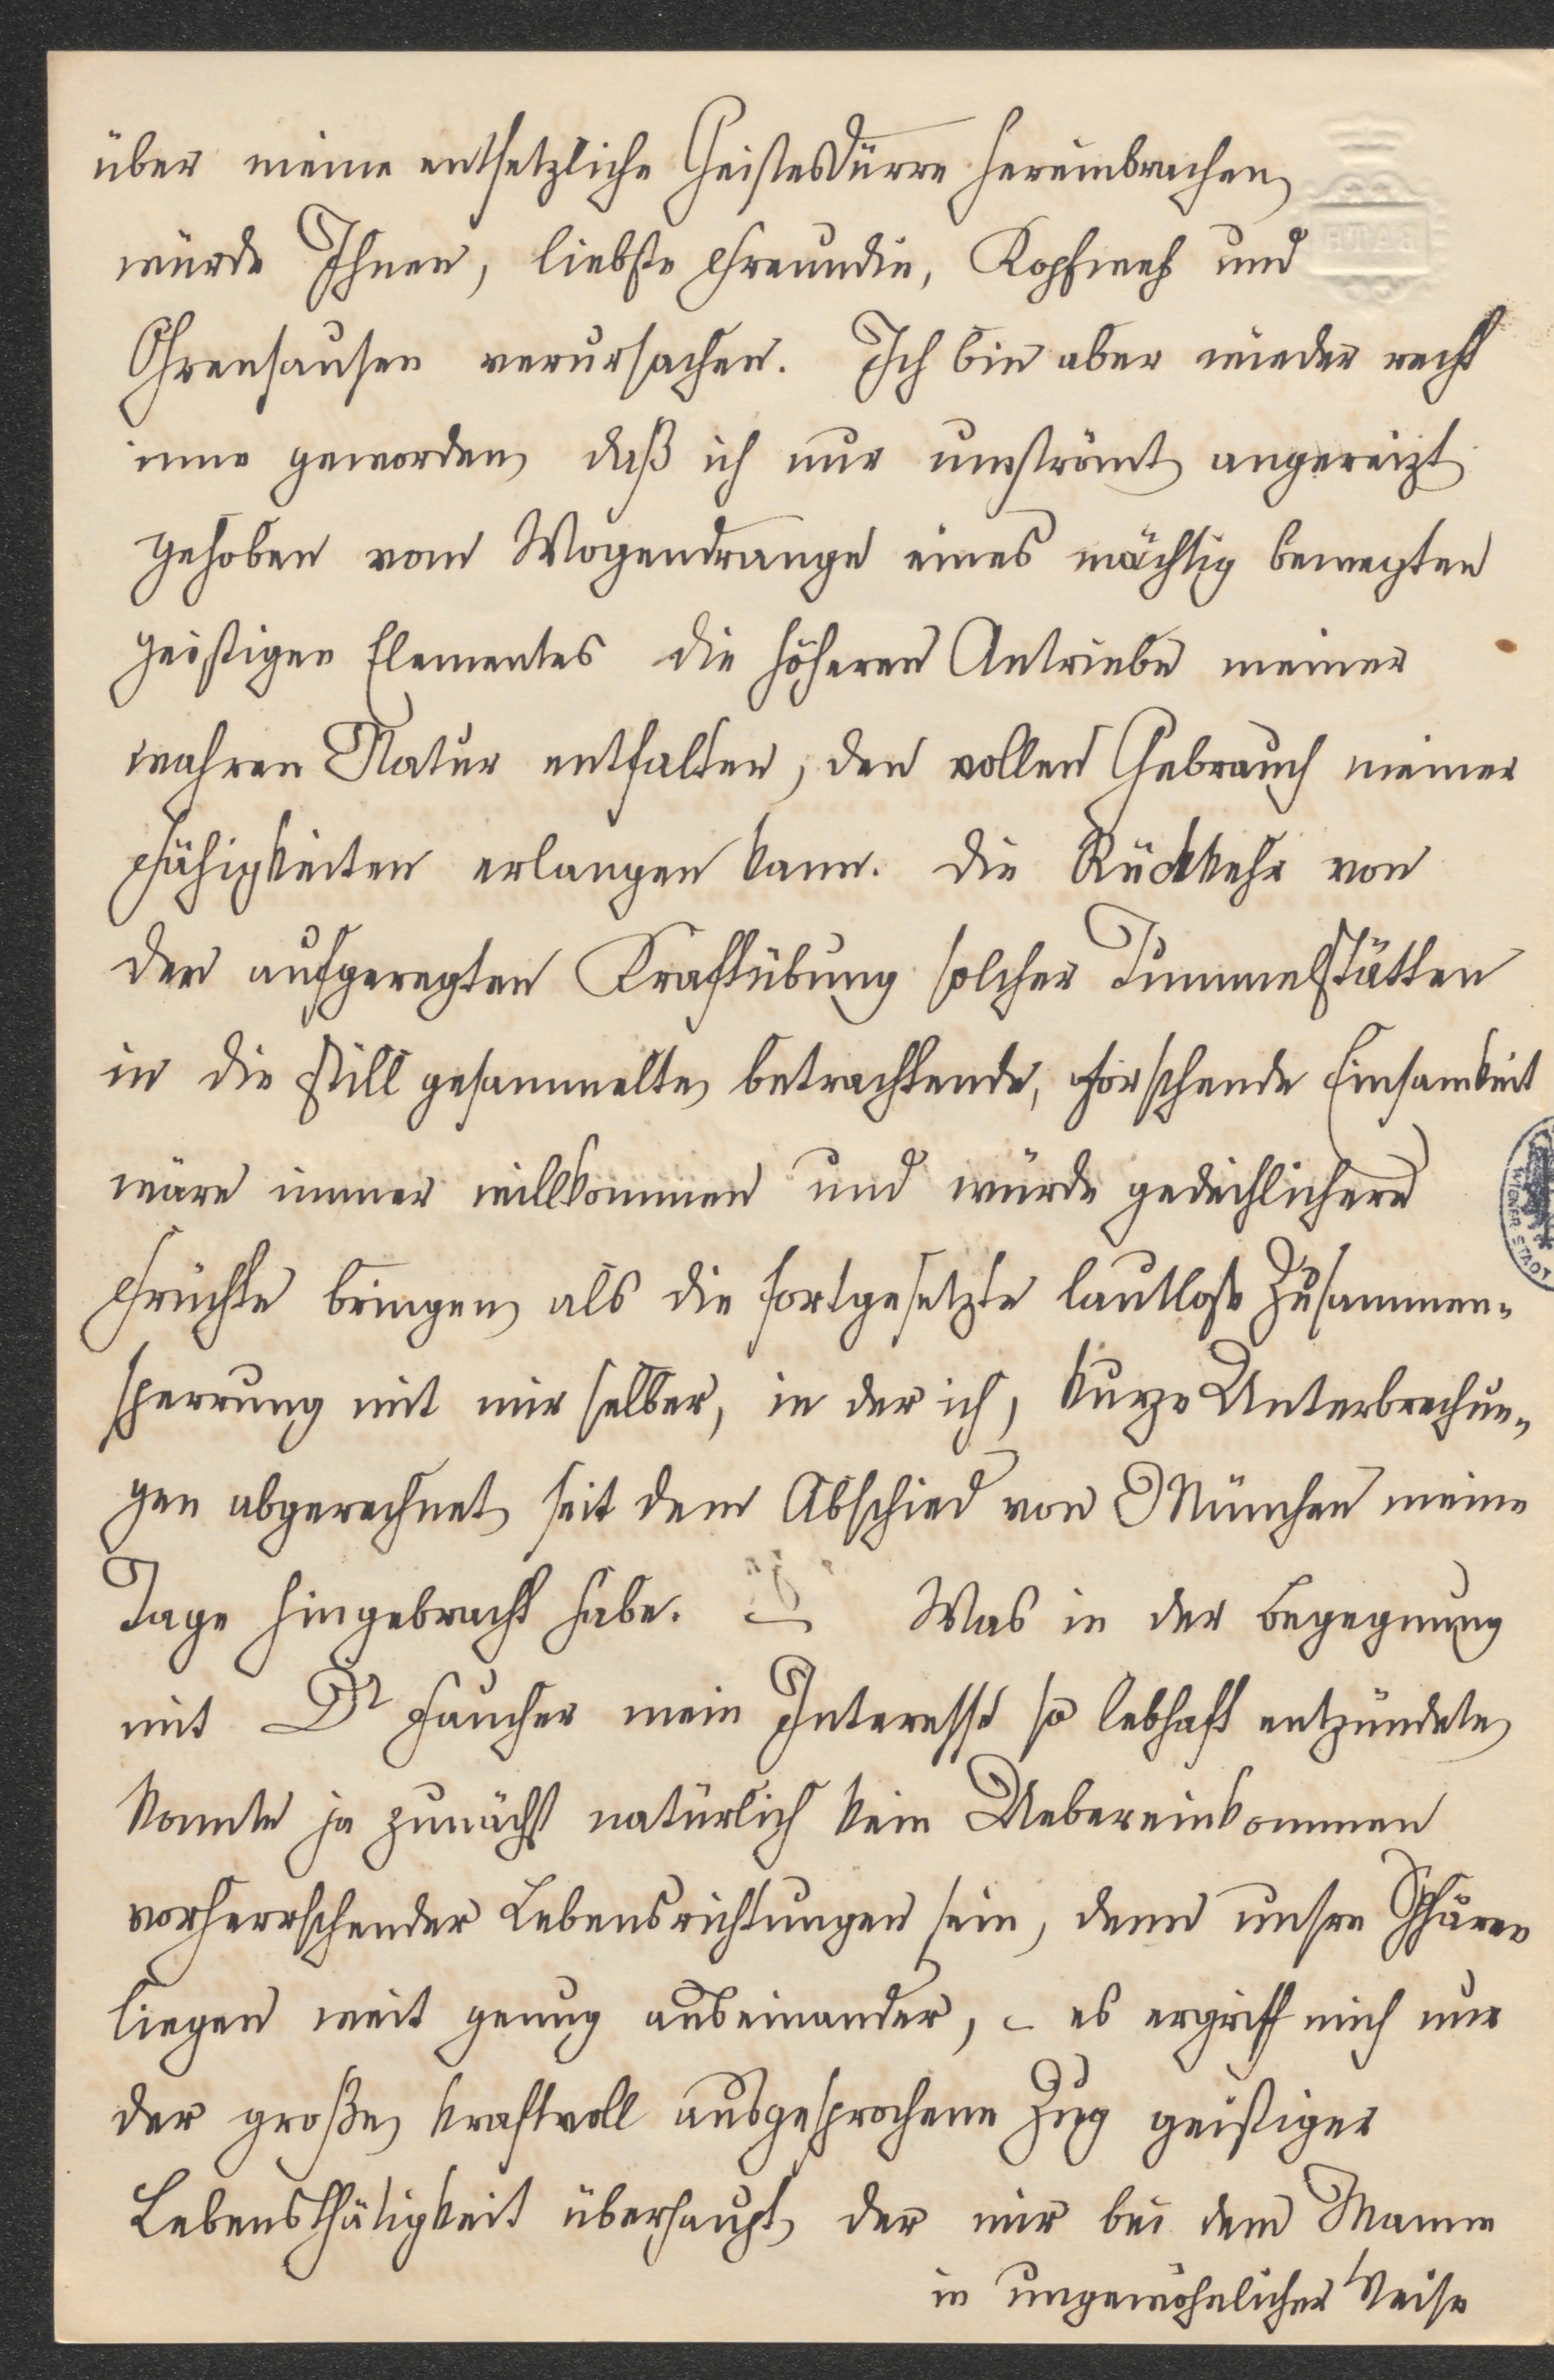 über meine entsetzliche Geistesdürre hereinbrachen,
würde Ihnen, liebste Freundin, Kopfweh und
Ohrensausen verursachen. Ich bin aber wieder recht
inne geworden, daß ich nur umströmt, angereizt,
gehoben vom Wogendrange eines mächtig bewegten
geistigen Elementes die höheren Antriebe meiner
wahren Natur entfalten, den vollen Gebrauch meiner
Fähigkeiten erlangen kann. Die Rückkehr von
der aufgeregten Kraftübung solcher Tummelstätten
in die still gesammelte, betrachtende, forschende Einsamkeit
wäre immer willkommen und würde gedeihlichere
Früchte bringen, als die fortgesetzte lautlose Zusammen-
sperrung mit mir selber, in der ich, kurze Unterbrechun-
gen abgerechnet, seit dem Abschied von München meine
Tage hingebracht habe. Was in der Begegnung
mit Dr Faucher mein Interesse so lebhaft entzündete,
konnte ja zunächst natürlich kein Uebereinkommen
vorherrschender Lebensrichtungen sein, denn unsre Sphären
liegen weit genug auseinander, – es ergriff mich nur
der große, kraftvoll ausgesprochene Zug geistiger
Lebensthätigkeit überhaupt, der mir bei dem Manne
in ungewöhnlicher Weise
WIENER STADT